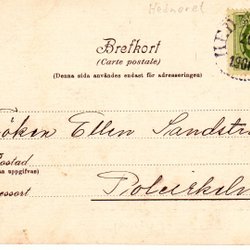 Hednoret
Brefkort
(Carte postale)
(Denna sida användes endast för adresseringen)
HED
190
öken Ellen Sandst
ostad
uppgifvas)
essort